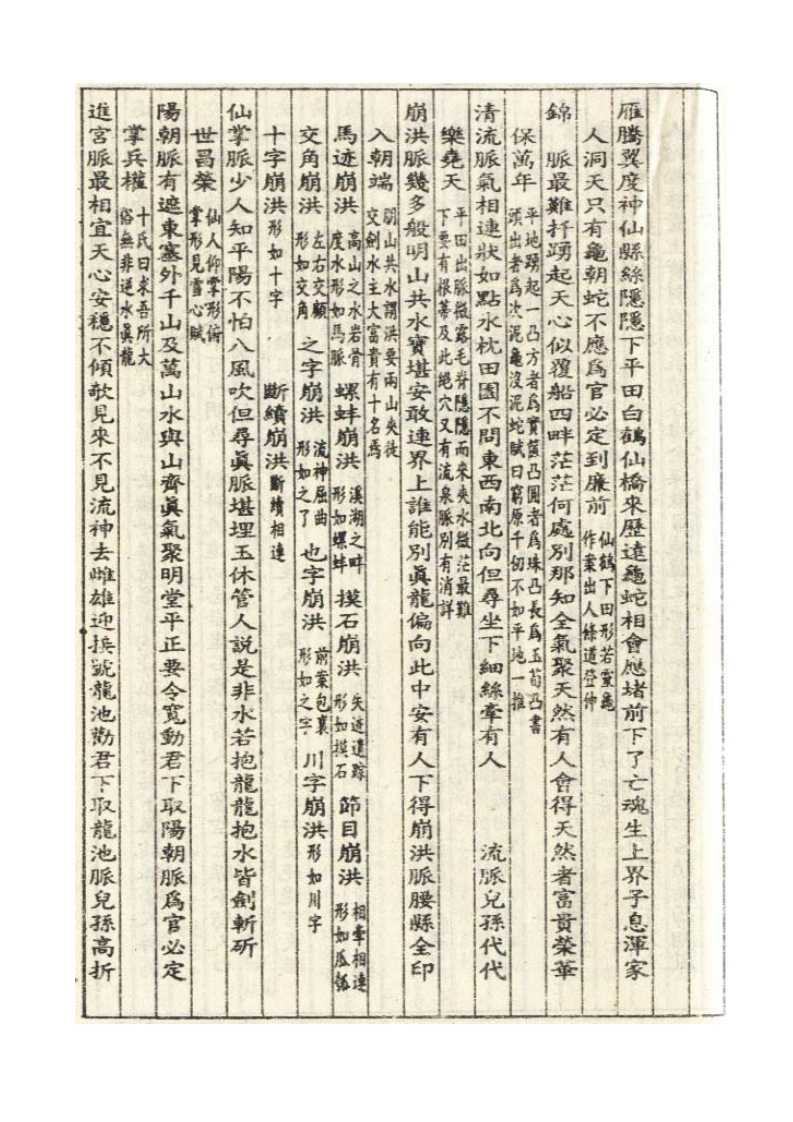 雁騰翼度神仙縣絲隱隱下平田白鶴仙橋來歷遠龜蛇相會應堵前下了亡魂生上界子息渾家
人洞天只有龜朝蛇不應為官必定到廉前 仙鶴下田形若靈龜
作案出人條道登仲
錦 脈最難扦踴起天心似覆船四畔茫茫何處別那知全氣聚天然有人會得天然者富貴榮華
保萬年 平地踴起一凸方者為寶篋凸圓者為珠凸長為玉筍凸書
頭出者為次泥龜沒泥蛇賦曰窮原千仞不如平地一推
清流脈氣相連狀如點水枕田園不問東西南北向但尋坐下細絲牽有人 流脈兒孫代代
樂堯天 平田出脈微露毛脊隱隱而來夾水微茫最難
下要有根蒂及此絕穴又有流泉脈別有消詳
崩洪脈幾多般明山共水寶堪安敢連界上誰能別眞龍偏向此中安有人下得崩洪脈腰縣全印
入朝端 朋山共水謂洪要兩山夾從
交劍水主大富貴有十名焉
馬迹崩洪 高山之水岩骨
度水形如馬脈 螺蚌崩洪 溪湖之畔
形如螺蚌 摸石崩洪 失迹遺踪
形如摸石 節目崩洪 相牽相連
形如瓜瓠
交角崩洪 左右交顧
形如交角 之字崩洪 流神屈曲
形如之了 也字崩洪 前案包裹
形如之字 川字崩洪 形如川字
十字崩洪 形如十字 斷續崩洪 斷續相連
仙掌脈少人知平陽不怕八風吹但尋眞脈堪埋玉休管人説是非水若抱龍龍抱水皆劍斬斫
世昌榮 仙人仰掌形俯
掌形見雪心賦
陽朝脈有遮東塞外千山及萬山水與山齊眞氣聚明堂平正要令寬動君下取陽朝脈為官必定
掌兵權 十氏曰求吾所大
俗無非逆水眞龍
進宮脈最相宜天心安穩不傾欹見來不見流神去雌雄迎接號龍池勸君下取龍池脈兒孫高折